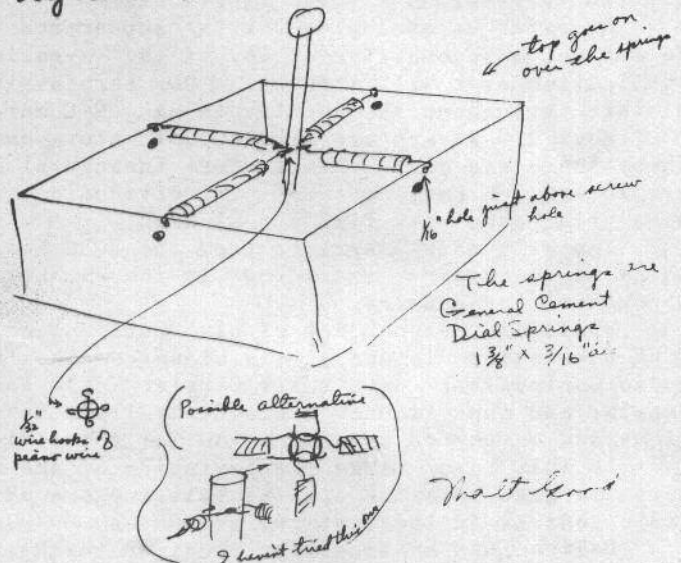 top goes on
over the springs
1/16" hole just above screw
hole
The springs are
General Cement
Dial Springs
1 3/8" x 3/16" dia.
1/32"
wire hooks of
piano wire
Possible alternative
I havent tried this one
Walt Good